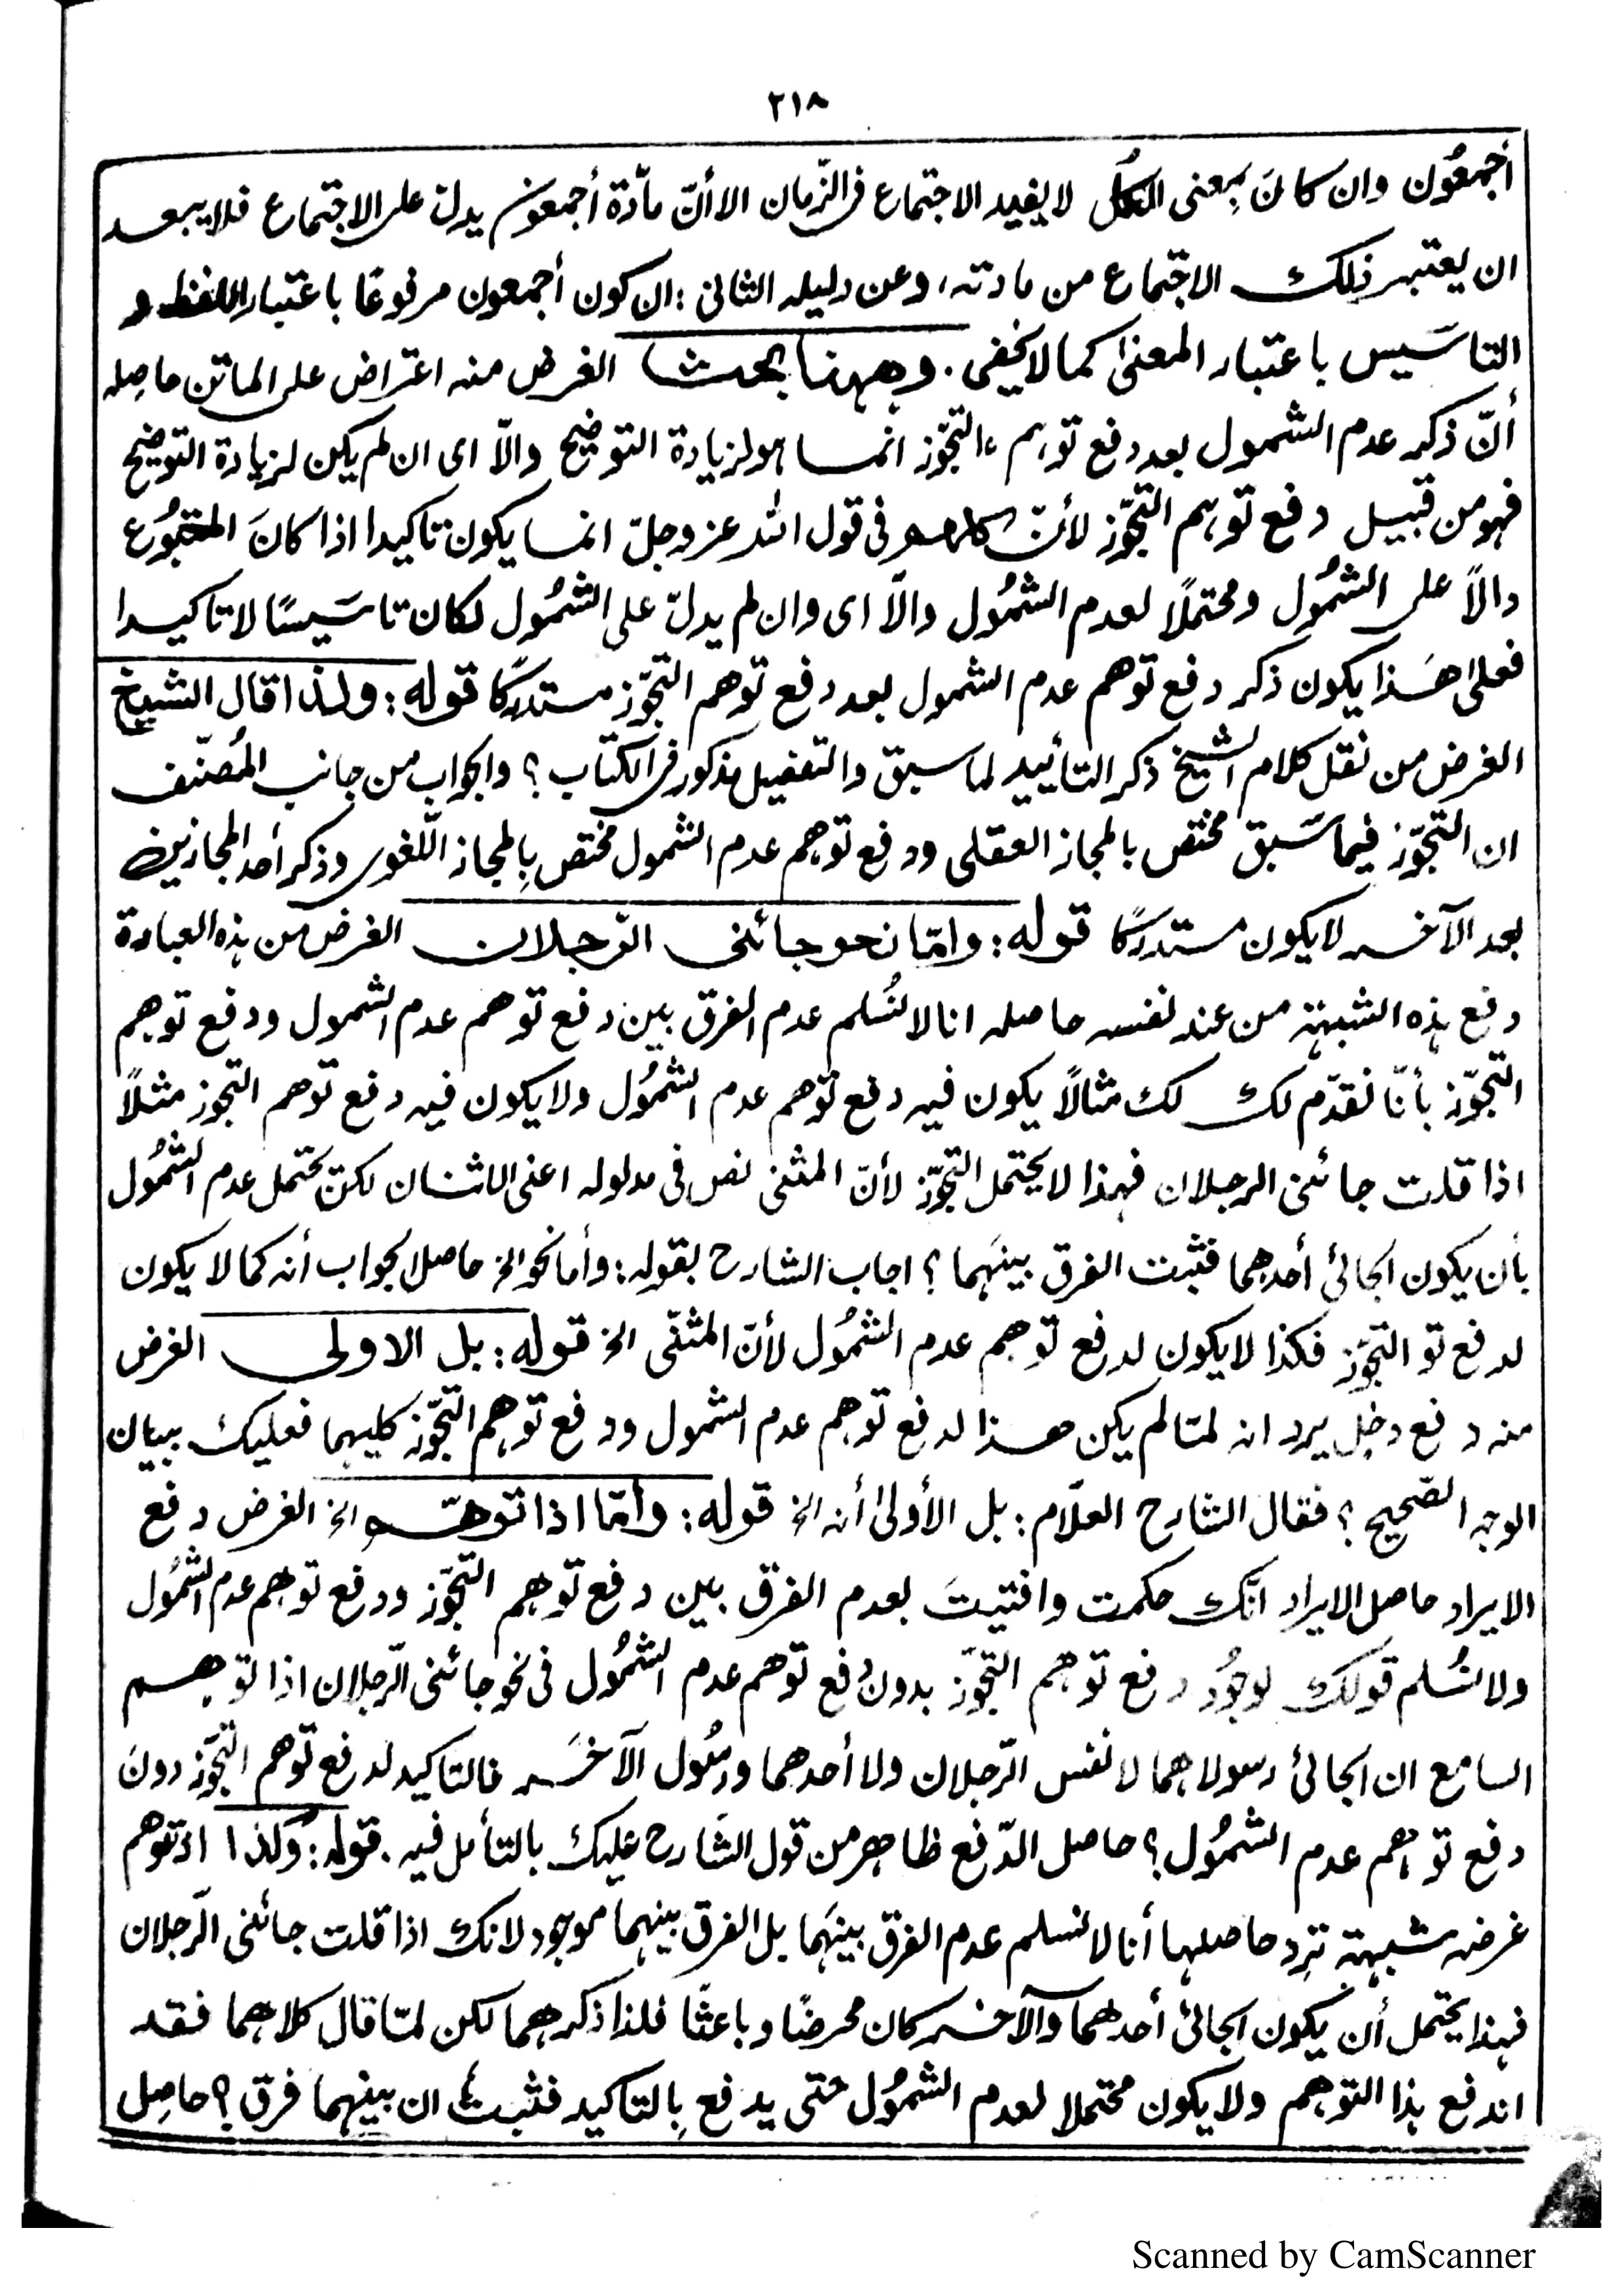 ٢١٨
أجمعُون وان كانَ بمعنى الكُل لا يفيد الاجتماع فى الزّمان الا أنّ مادّة أجمعون يدل على الاجتماع فلا يبعد
ان يعتبر ذلك الاجتماع من مادته، وعن دليله الثانى: ان كون أجمعون مرفوعًا باعتبار اللفظ و
التاسَيس باعتبار المعنىٰ كما لا يخفى. وههنا بحث الغرض منه اعتراض على الماتن حاصله
أنّ ذكر عدم الشمول بعد دفع توهم التجوّز انما هو لزيادة التوضيح والّا اى ان لم يكن لزيادة التوضيح
فهو من قبيل دفع توهم التجوّز لأنّ كلهم فى قول الله عز وجلّ انما يكون تاكيدا اذا كانَ المتبُوع
دالاً على الشمُول ومحتملًا لعدم الشمُول والّا اى وان لم يدلّ على الشمُول لكان تاسَيسًا لا تاكيدا
فعلىٰ هَذا يكون ذكر دفع توهم عدم الشمول بعد دفع توهم التجوّز مستدركًا قوله: ولذا قال الشيخ
الغرض من نقل كلام الشيخ ذكر التأييد لما سبق والتفصيل مذكور فى الكتاب؟ والجواب من جانب المُصنّف
ان التجوّز فيما سَبق مختص بالمجاز العقلى ودفع توهم عدم الشمول مختص بِالمجاز اللّغوى وذكر أحد المجازين
بعد الآخر لا يكون مستدركًا قوله: وامّا نحو جائنى الرّجلان الغرض من هذه العبارة
دفع هذه الشبهة من عند نفسه حاصله انا لا نُسلم عدم الفرق بين دفع توهم عدم الشمول ودفع توهم
التجوّز بأنّا نقدّم لك لك مثالًا يكون فيه دفع توهم عدم الشمُول ولا يكون فيه دفع توهم التجوز مثلًا
اذا قلت جائنى الرجلان فهذا لا يحتمل التجوّز لأنّ المثنى نص فى مدلوله اعنى الاثنان لكن يحتمل عدم الشمُول
بأن يكون الجائى أحدهما فثبت الفرق بينهَما؟ اجاب الشارح بقوله: وأما نحو الخ حاصل الجواب أنه كما لا يكون
لدفع تو التجوّز فكذا لا يكون لدفع توهم عدم الشمُول لأنّ المثنّى الخ قوله: بل الاولى الغرض
منه دفع دخل يرد انه لمّا لم يكن هذا لدفع توهم عدم الشمول ودفع توهم التجوّز كليهما فعليك ببيان
الوجه الصّحيح؟ فقال الشارح العلّام: بل الأولىٰ أنه الخ قوله: وأمّا اذا توهّم الخ الغرض دفع
الايراد حاصل الايراد انّك حكمت وافتيتَ بعدم الفرق بين دفع توهم التجوّز ودفع توهم عدم الشمُول
ولا نُسلم قولك لوجُود دفع توهم التجوّز بدون دفع توهم عدم الشمُول فى نحو جائنى الرّجلان اذا توهم
السامع ان الجائى رسولاهما لا نفس الرّجلان ولا أحدهما ورسُول الآخَر فالتاكيد لدفع توهم التجوّز دونَ
دفع توهم عدم الشمُول؟ حاصل الدّفع ظاهر من قول الشارح عليك بالتأمل فيه. قوله: وَكذا اذ توهم
غرضه شبهة تردِ حاصلها أنا لا نسلم عدم الفرق بينهَما بل الفرق بينهما موجود لانك اذا قلت جائنى الرّجلان
فهذا يحتمل أن يكون الجائى أحدهما والآخر كان محرضًا وباعثًا فلذا ذكرهما لكن لمّا قال كلاهما فقد
اندفع هذا التوهم ولا يكون محتملا لعدم الشمُول حتى يدفع بِالتاكيد فثبت ان بينهما فرق؟ حاصِل
Scanned by CamScanner